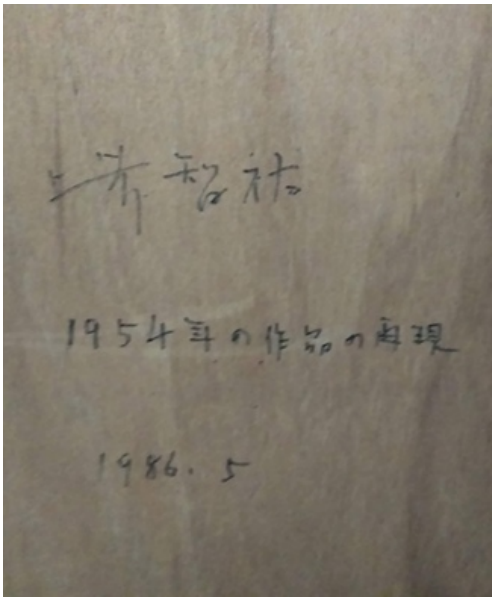 上前智祐
1954年の作品の再現
1986.5